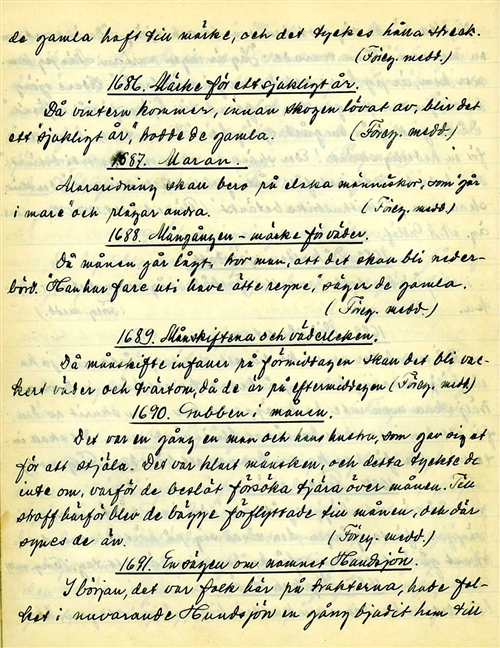 de gamla haft till märke, och det tyckes hålla streck.
(Föreg. medd.)
1686. Märke för ett sjukligt år.
Då vintern kommer, innan skogen lövat av, blir det
ett "sjukligt år", trodde de gamla. (Föreg. medd.)
1687. Maran.
Mararidning skall bero på elaka människor, som "går
i mare" och plågar andra. (Föreg. medd.)
1688. Mångången - märke för väder.
Då månen går lågt, tror man, att det skall bli neder-
börd. "Han har fare uti have ätte regne," säger de gamla.
(Föreg. medd.)
1689. Månskiftena och väderleken.
Då månskifte infaller på förmiddagen skall det bli vac-
kert väder och tvärtom, då de är på eftermiddagen (Föreg. medd)
1690. Gubben i månen.
Det var en gång en man och hans hustru, som gav sig ut
för att stjäla. Det var klart månsken, och detta tyckte de
inte om, varför de beslöt försöka tjära över månen. Till
straff härför blev de bägge förflyttade till månen, och där
synes de än. (Föreg. medd.)
1691. En sägen om namnet Hundsjön.
I början, det var folk här på trakterna, hade fol-
ket i nuvarande Hundsjön en gång bjudit hem till